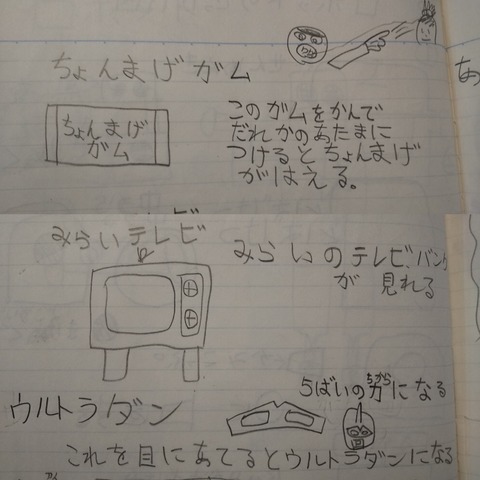 ちょんまげガム
ちょんまげ
ガム
このガムをかんで
だれかのあたまに
つけるとちょんまげ
がはえる。
みらいテレビ
みらいのテレビバング
が見れる
ウルトラダン
5ばいの力になる
ちから
これを目にあてるとウルトラダンになる